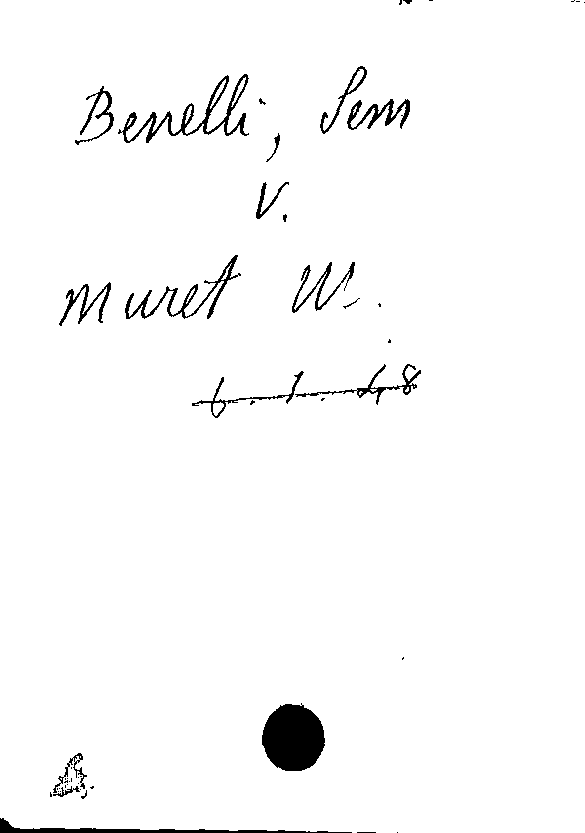 Benelli, Sem
V.
Muret M.
6. 1. 48